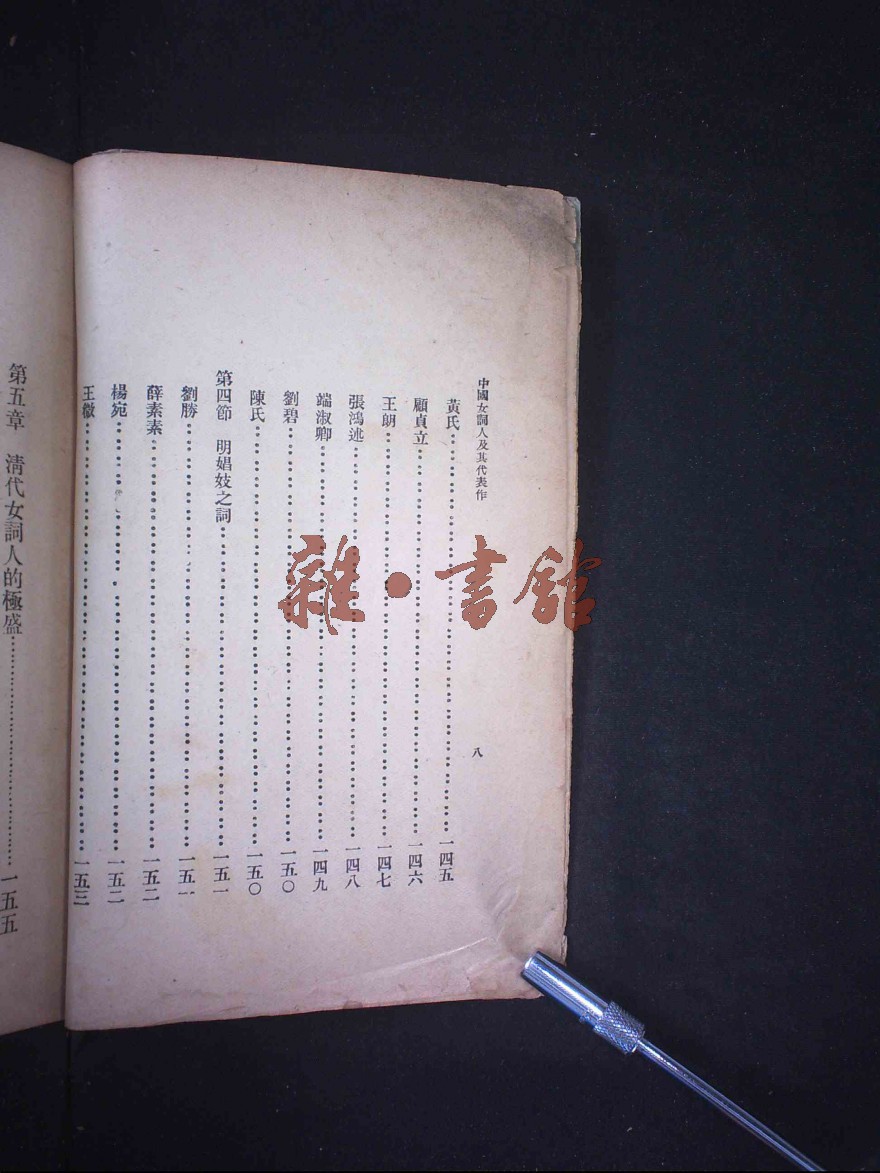 中國女詞人及其代表作
八
黃氏…………一四五
顧貞立…………一四六
王朗…………一四七
張鴻逑…………一四八
端淑卿…………一四九
劉碧…………一五〇
陳氏…………一五〇
第四節　明娼妓之詞…………一五一
劉勝…………一五一
薛素素…………一五二
楊宛…………一五二
王微…………一五三
第五章　清代女詞人的極盛…………一五五
雜·書館